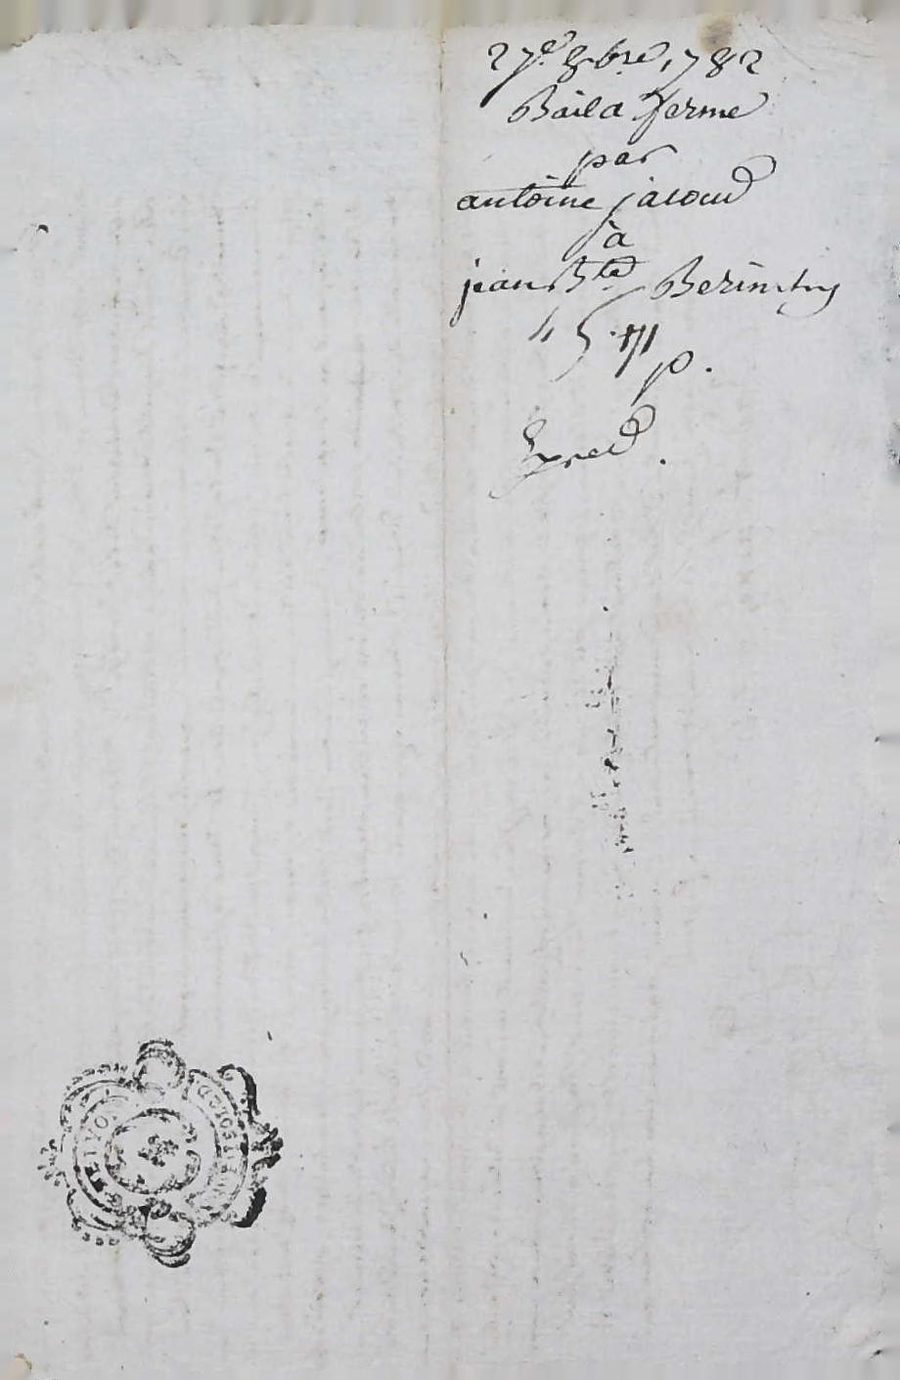 27e 8bre 1782
Bail a ferme
par
antoine jacoud
à
jean Bte
p.
Exped.